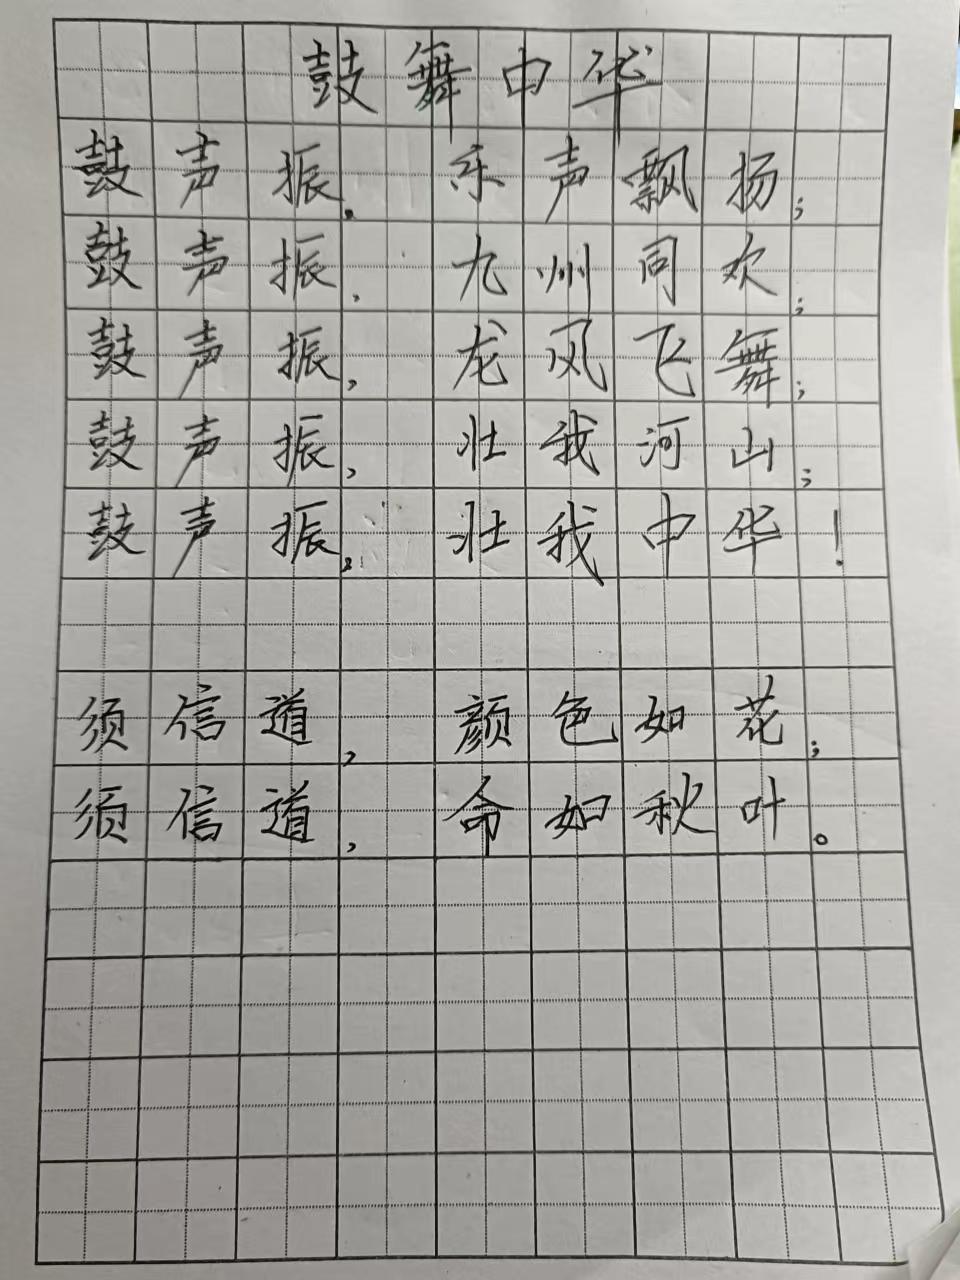 鼓舞中华
鼓声振，乐声飘扬；
鼓声振，九州同欢；
鼓声振，龙凤飞舞；
鼓声振，壮我河山；
鼓声振，壮我中华！
须信道，颜色如花；
须信道，命如秋叶。